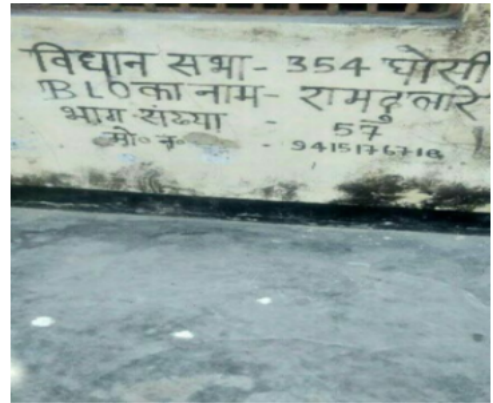 विधान सभा - 354 घोसी
BLO का नाम - रामदुलारे
भाग संख्या - 57
मो० न० - 9415176718